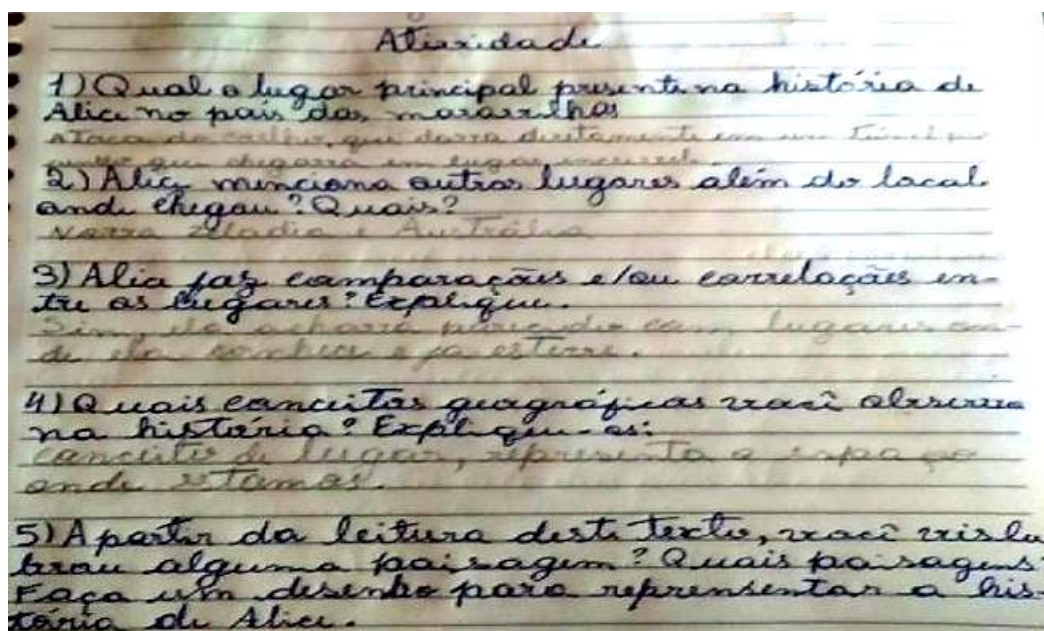 Atividade
1) Qual o lugar principal presente na história de
Alice no país das maravilhas
A Toca do coelho, que dava diretamente em um Túnel
que chegava em lugar incrível.
2) Alice menciona outros lugares além do local
onde chegou? Quais?
Nova Zeladia e Austrália
3) Alice faz comparações e/ou correlações en-
tre os lugares? Explique.
Sim, ela achava parecido com lugares on-
de ela conhece e ja esteve.
4) Quais conceitos geográficos você observa
na história? Explique-os:
conceito de lugar, representa o espaço
onde estamos.
5) A partir da leitura deste texto, você vislu
brou alguma paisagem? Quais paisagens?
Faça um desenho para reprensentar a his-
tória de Alice.